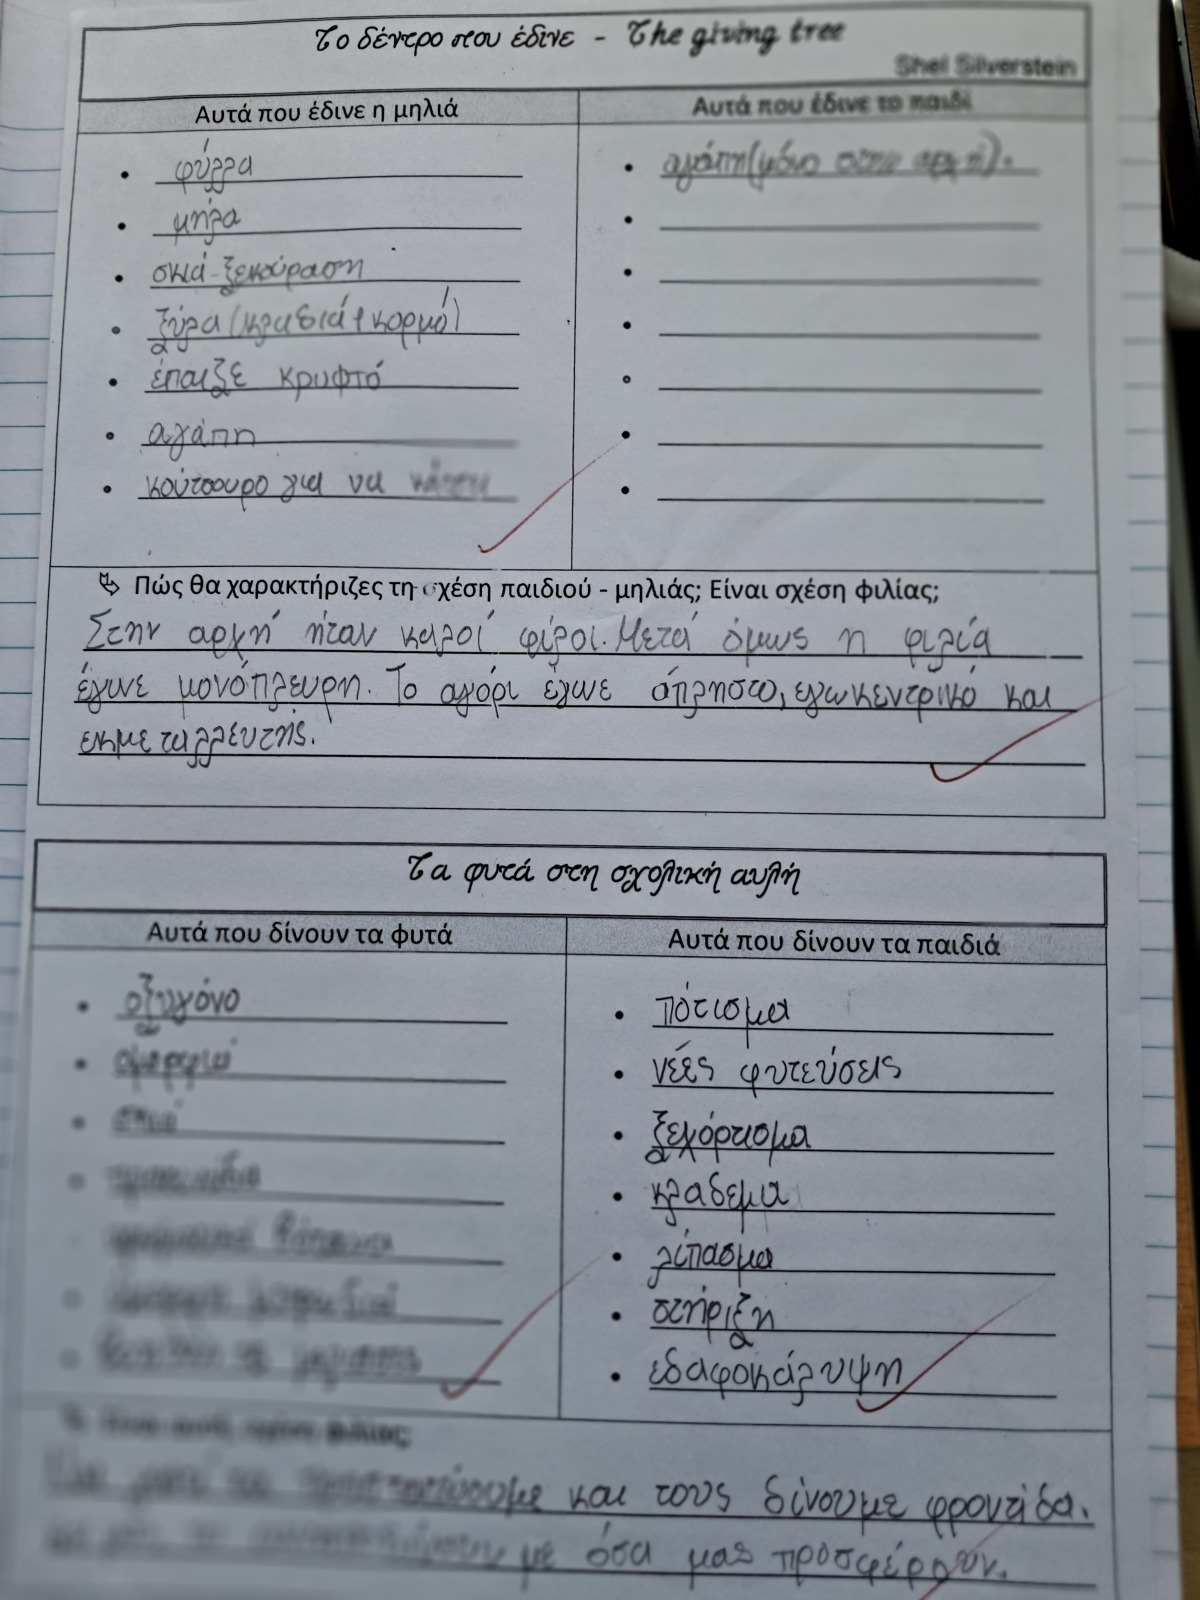 Το δέντρο που έδινε - The giving tree
Shel Silverstein
Αυτά που έδινε η μηλιά
Αυτά που έδινε το παιδί
φύλλα
μήλα
σκιά-ξεκούραση
ξύλα (κλαδιά + κορμό)
έπαιξε κρυφτό
αγάπη
κούτσουρο για να
αγάπη (μόνο στην αρχή).
Πώς θα χαρακτήριζες τη σχέση παιδιού - μηλιάς; Είναι σχέση φιλίας;
Στην αρχή ήταν καλοί φίλοι. Μετά όμως η φιλία
έγινε μονόπλευρη. Το αγόρι έγινε άπληστο, εγωκεντρικό και
εκμεταλλευτής.
Τα φυτά στη σχολική αυλή
Αυτά που δίνουν τα φυτά
Αυτά που δίνουν τα παιδιά
οξυγόνο
ομορφιά
σκιά
πότισμα
νέες φυτεύσεις
ξεχόρτισμα
κλάδεμα
λίπασμα
στήριξη
εδαφοκάλυψη
και τους δίνουμε φροντίδα.
με όσα μας προσφέρουν.